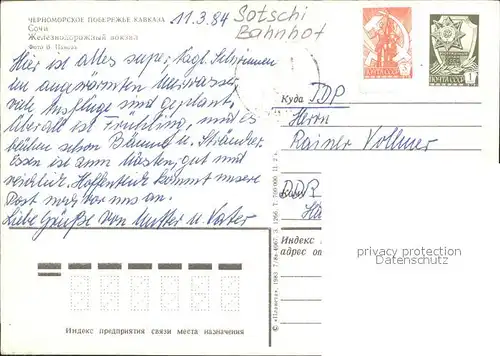 ЧЕРНОМОРСКОЕ ПОБЕРЕЖЬЕ КАВКАЗА
Сочи
Железнодорожный вокзал
11.3.84 Sotschi
Bahnhof
Hier ist alles super. Tägl. Schwimmen
im angewärmten Meerwasser,
viele Ausflüge sind geplant.
Überall ist Frühling, und es
blühen schon Bäume u. Sträucher.
Essen ist zum Mästen, gut und
reichlich. Hoffentlich kommt unsere
Post noch vor uns an.
Liebe Grüße von Mutter u. Vater
ПОЧТА СССР
ПОЧТА СССР
1
Куда
Herrn
Rainer Vollmer
DDP
Индекс
адрес
privacy protection
Datenschutz
© «Планета». 1983.
Индекс предприятия связи места назначения